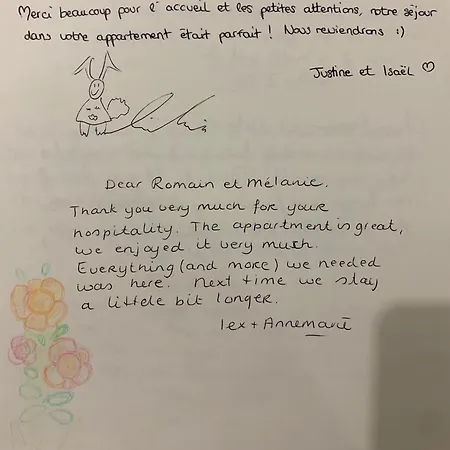 Merci beaucoup pour l'accueil et les petites attentions, notre séjour
dans votre appartement était parfait ! Nous reviendrons :)
Justine et Isaël ♡
Dear Romain et Mélanie.
Thank you very much for your
hospitality. The appartment is great,
we enjoyed it very much.
Everything (and more) we needed
was here. Next time we stay
a little bit longer.
lex + Annemarie